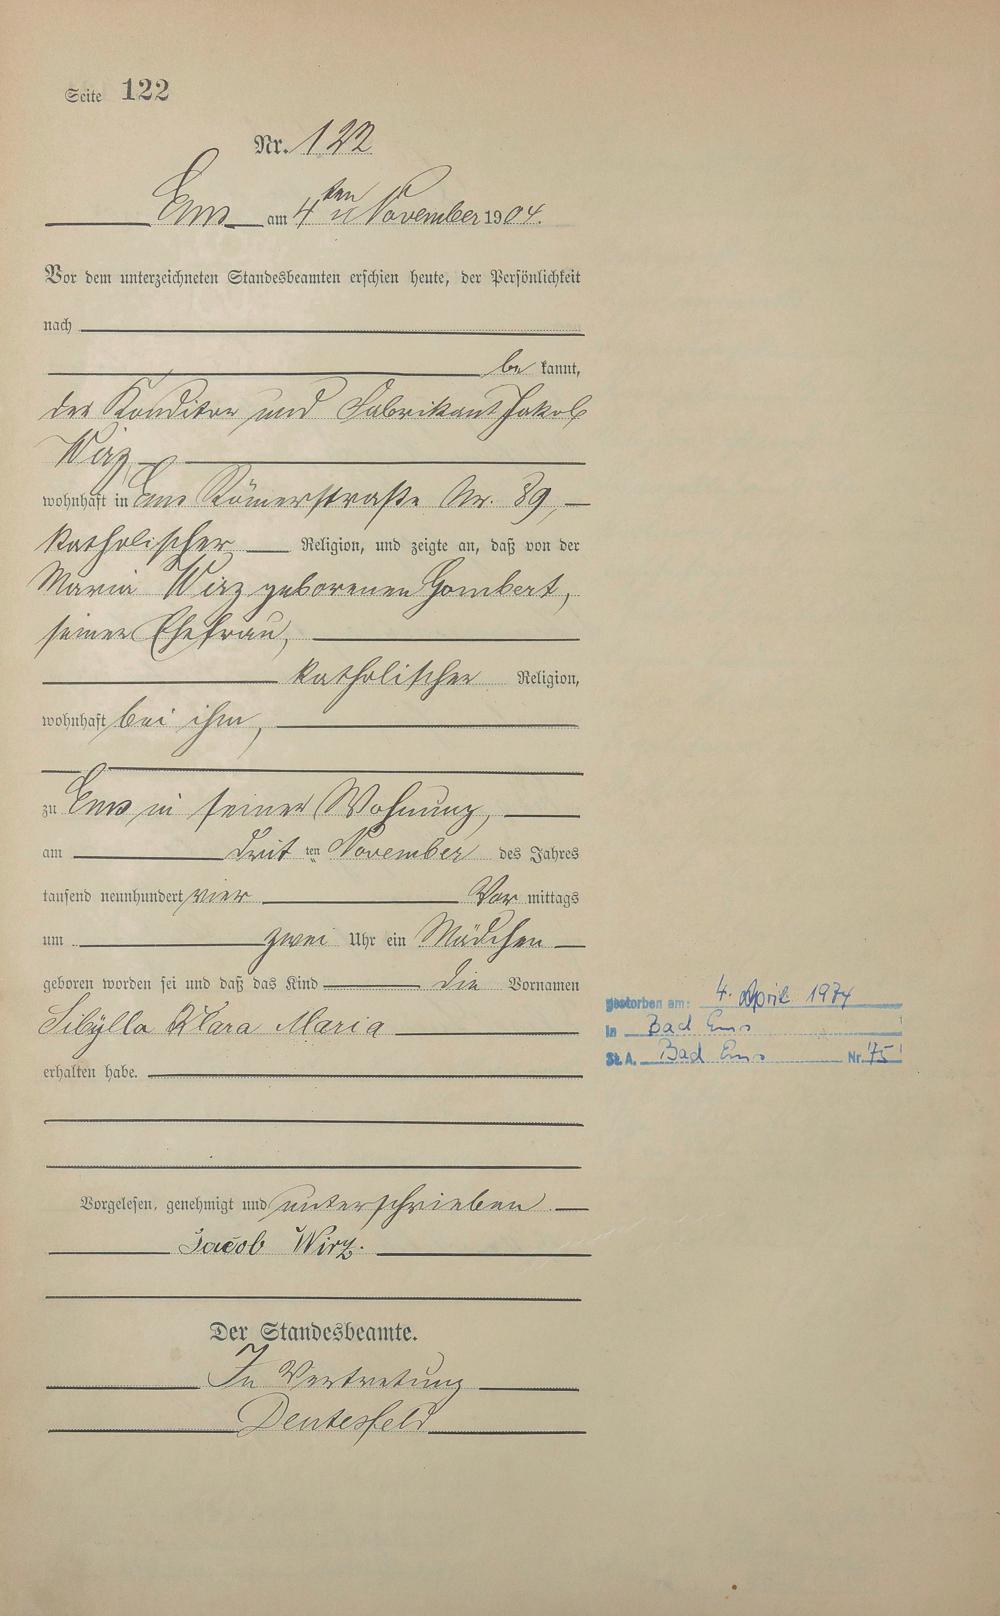 Seite 122
Nr. 122
Ems am 4ten November 1904.
Vor dem unterzeichneten Standesbeamten erschien heute, der Persönlichkeit
nach
be kannt,
der Konditor und Fabrikant Jakob
Wirz
wohnhaft in Ems Römerstraße Nr. 89,
katholischer Religion, und zeigte an, daß von der
Maria Wirz geborenen Gombert,
seiner Ehefrau,
katholischer Religion,
wohnhaft bei ihm,
zu Ems in seiner Wohnung,
am dritten November des Jahres
tausend neunhundert vier Vor mittags
um zwei Uhr ein Mädchen
geboren worden sei und daß das Kind die Vornamen
Sibylla Klara Maria
erhalten habe.
Vorgelesen, genehmigt und unterschrieben
Jacob Wirz.
Der Standesbeamte.
In Vertretung
gestorben am: 4. April 1974
in Bad Ems
St. A. Bad Ems Nr. 75